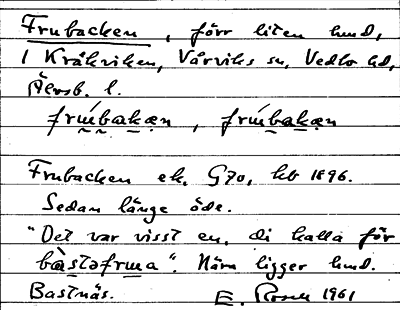 Frubacken, förr liten hmd,
i Kråkviken, Vårviks sn, Vedbo hd,
Älvsb. l.
frúbakæn, frúbakæn
Frubacken ek. G70, hb 1896.
Sedan länge öde.
"Det var visst en, di kalla för
bàstəfrua". Nära ligger hmd.
Bastnäs. E. Rosell 1961